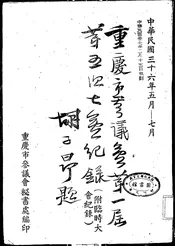 中華民國三十六年五月—七月
重慶市參議會第一屆
第五次大會紀錄
（附臨時大會紀錄）
胡子昂題
重慶市參議會秘書處編印